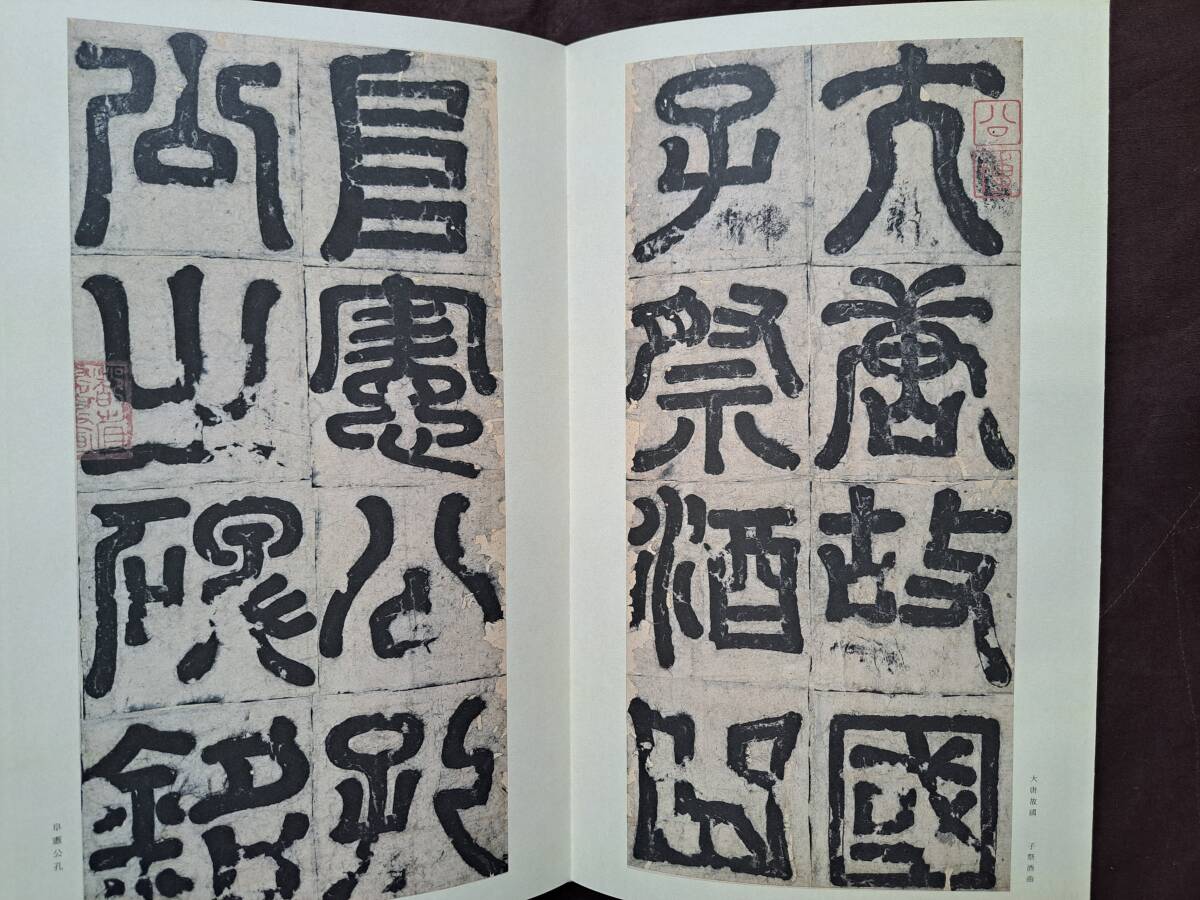 大唐故國
子祭酒曲
阜憲公孔
公之碑銘
大唐故國　子祭酒曲
阜憲公孔